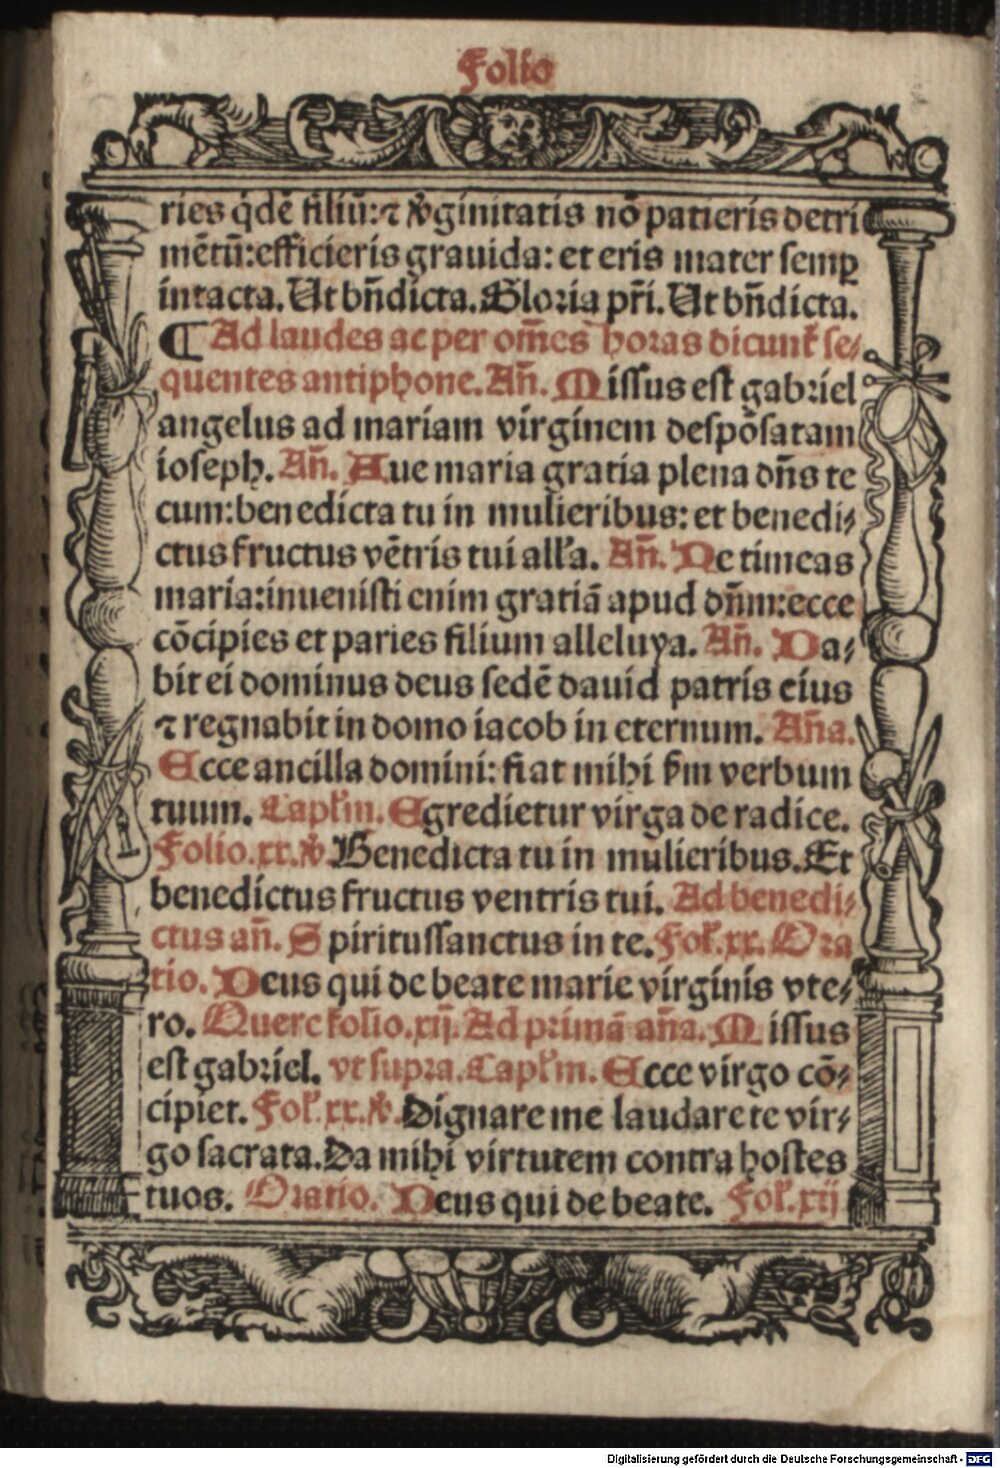 Folio
ries q̇dē filiū:⁊ ꝟginitatis nō patieris detri
mētū:efficieris grauida: et eris mater semꝑ
intacta. Ut bn̄dicta. Gloria pr̄i. Ut bn̄dicta.
¶ Ad laudes ac per om̄es horas dicunt᷑ se⸗
quentes antiphone. An̄. Missus est gabriel
angelus ad mariam virginem despōsatam
ioseph. An̄. Aue maria gratia plena dn̄s te
cum:benedicta tu in mulieribus: et benedi⸗
ctus fructus vētris tui all'a. An̄. Ne timeas
maria:inuenisti enim gratiā apud dn̄m:ecce
cōcipies et paries filium alleluya. An̄. Da⸗
bit ei dominus deus sedē dauid patris eius
⁊ regnabit in domo iacob in eternum. An̄a.
Ecce ancilla domini: fiat mihi s̄m verbum
tuum. Capl'm. Egredietur virga de radice.
Folio.xx.℣. Benedicta tu in mulieribus. Et
benedictus fructus ventris tui. Ad benedi⸗
ctus an̄. Spiritussanctus in te. Fol'.xx. Ora
tio. Deus qui de beate marie virginis vte⸗
ro. Quere folio.xij. Ad primā an̄a. Missus
est gabriel. vt supra. Capl'm. Ecce virgo cō⸗
cipiet. Fol'.xx.℣. Dignare me laudare te vir⸗
go sacrata. Da mihi virtutem contra hostes
tuos. Oratio. Deus qui de beate. Fol'.xij
Digitalisierung gefördert durch die Deutsche Forschungsgemeinschaft - DFG